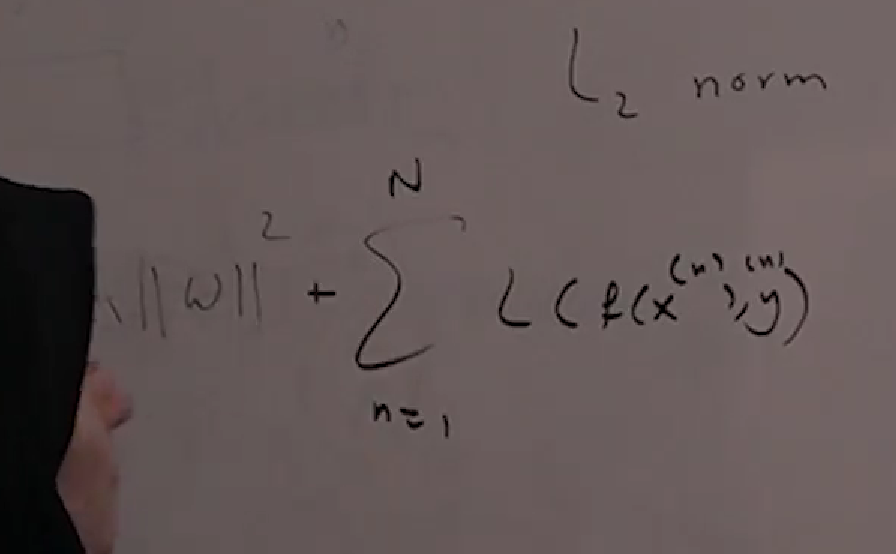 L₂ norm
‖w‖² + ∑_{n=1}^{N} L(f(x⁽ⁿ⁾), y⁽ⁿ⁾)